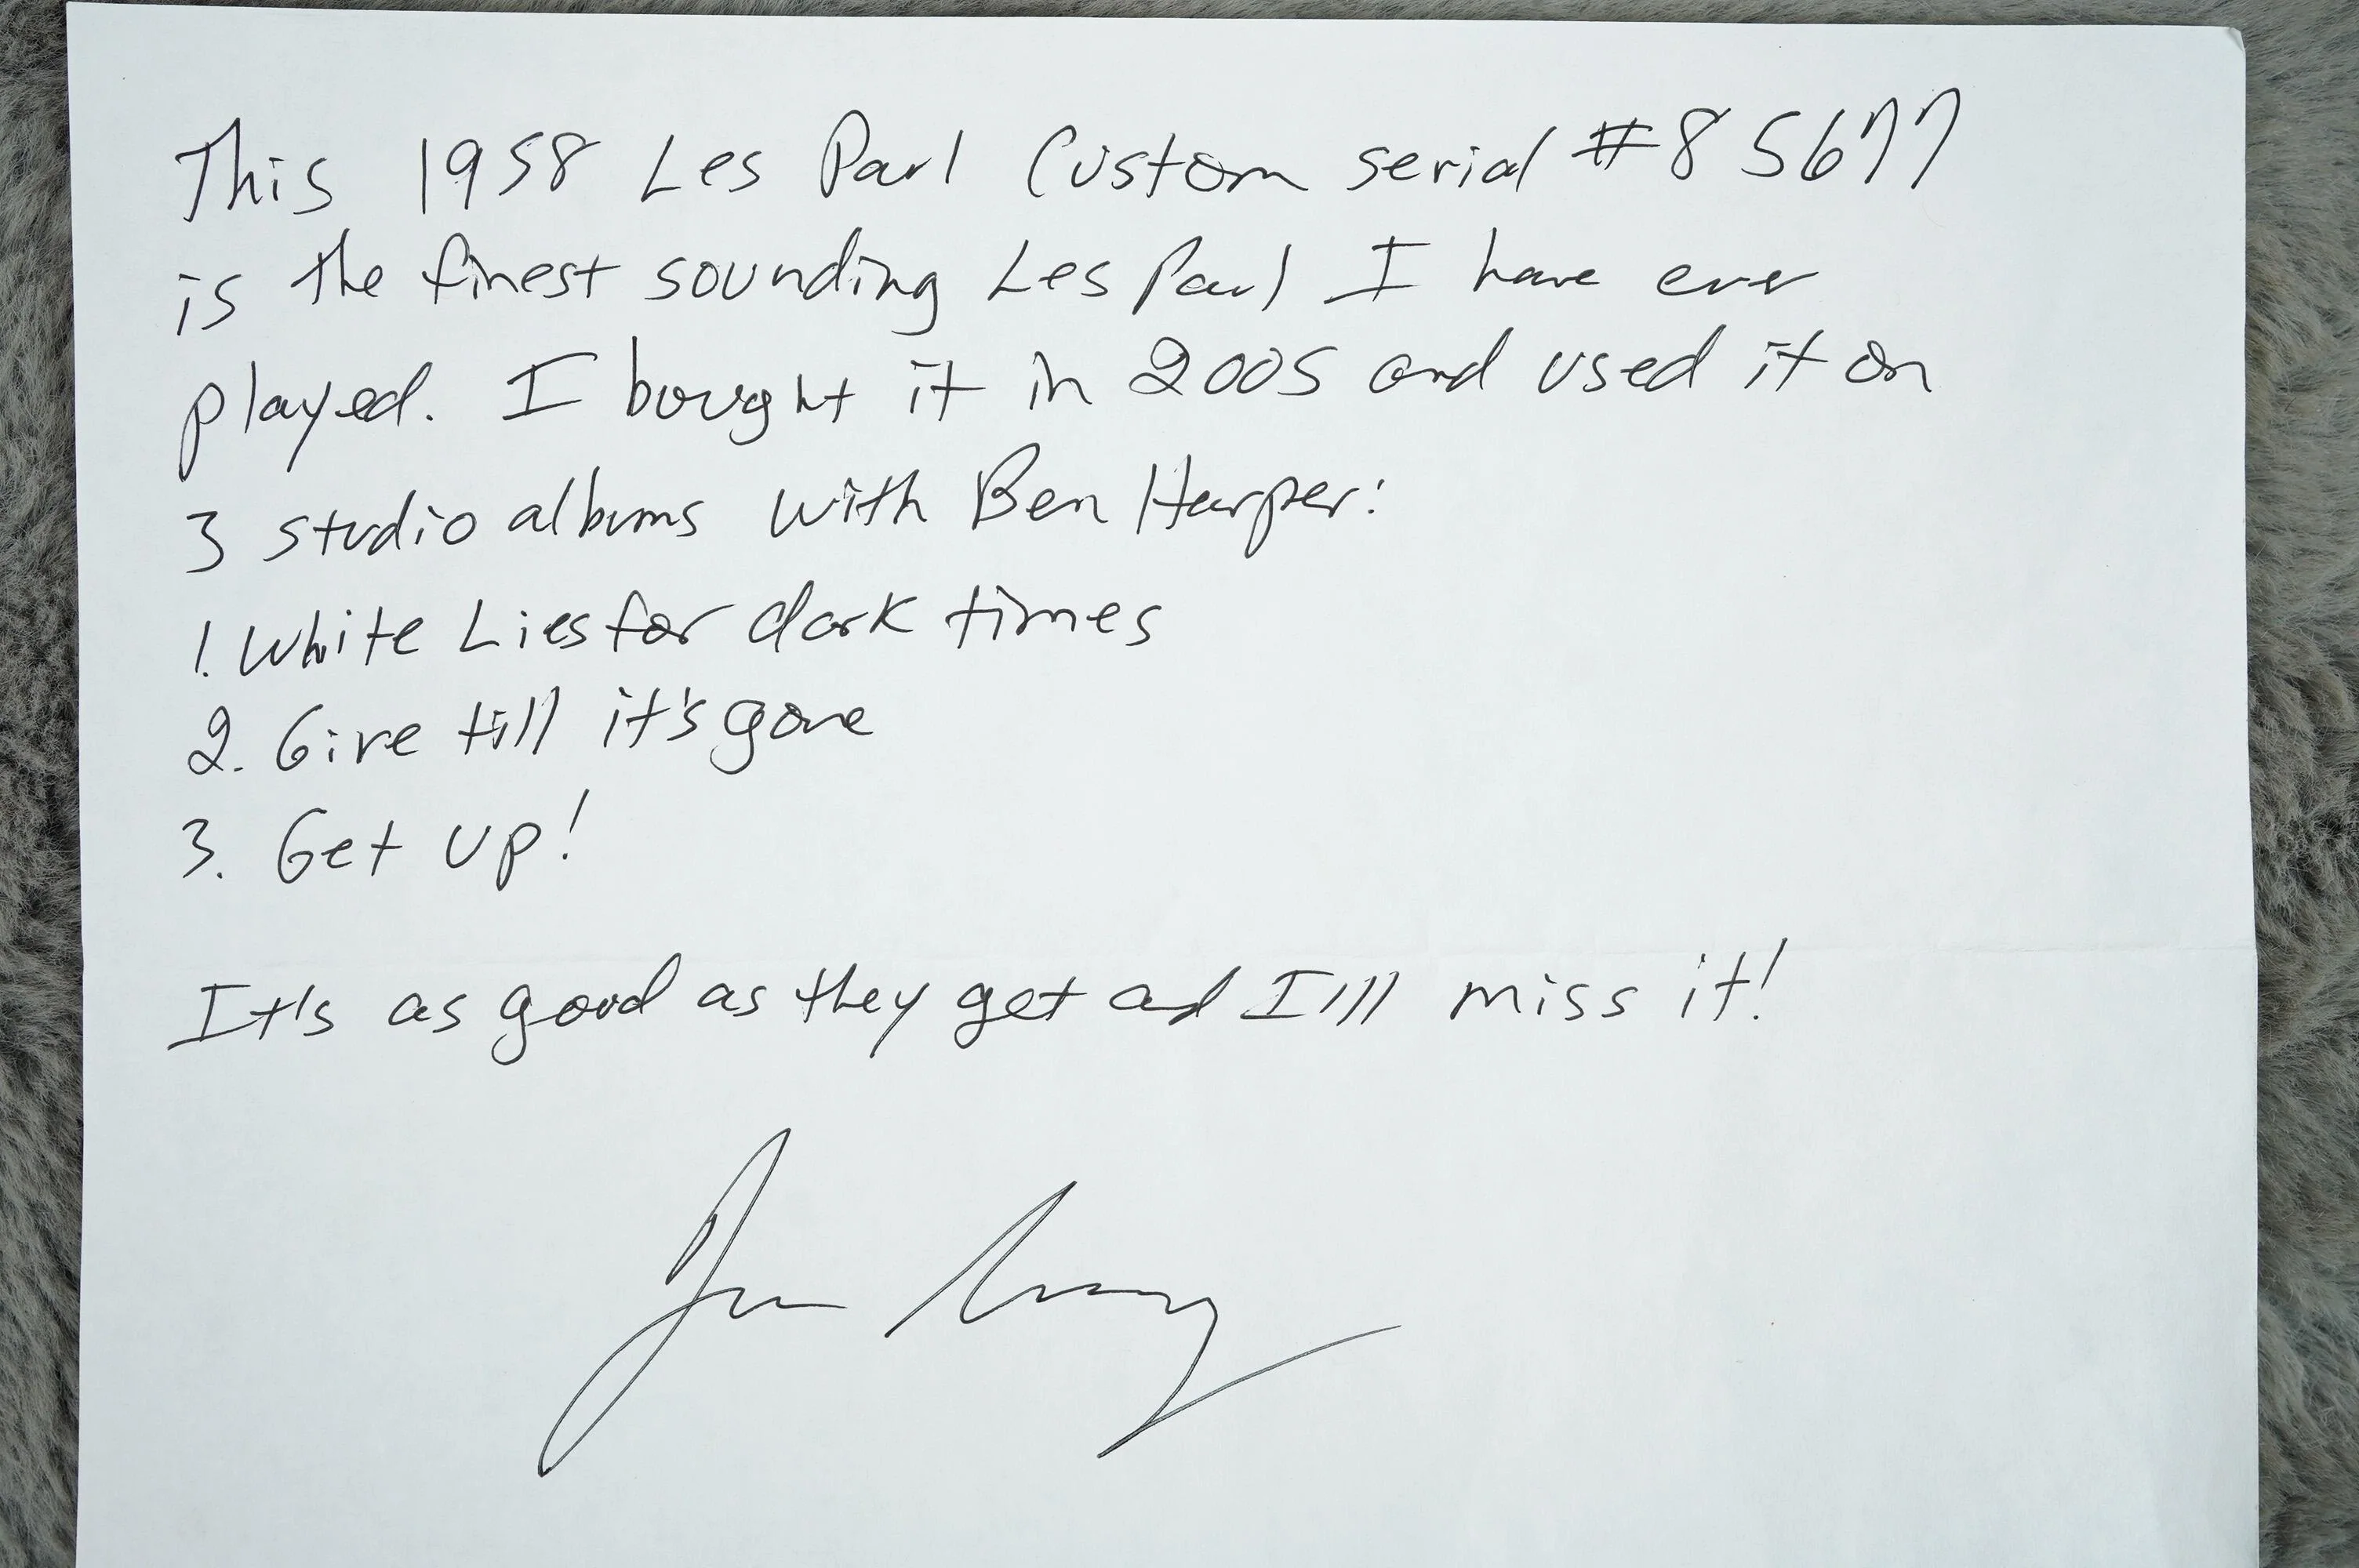 This 1958 Les Paul Custom serial #8 5677
is the finest sounding Les Paul I have ever
played. I bought it in 2005 and used it on
3 studio albums with Ben Harper:
1. White Lies for dark times
2. Give till it's gone
3. Get up!
It's as good as they get and I'll miss it!